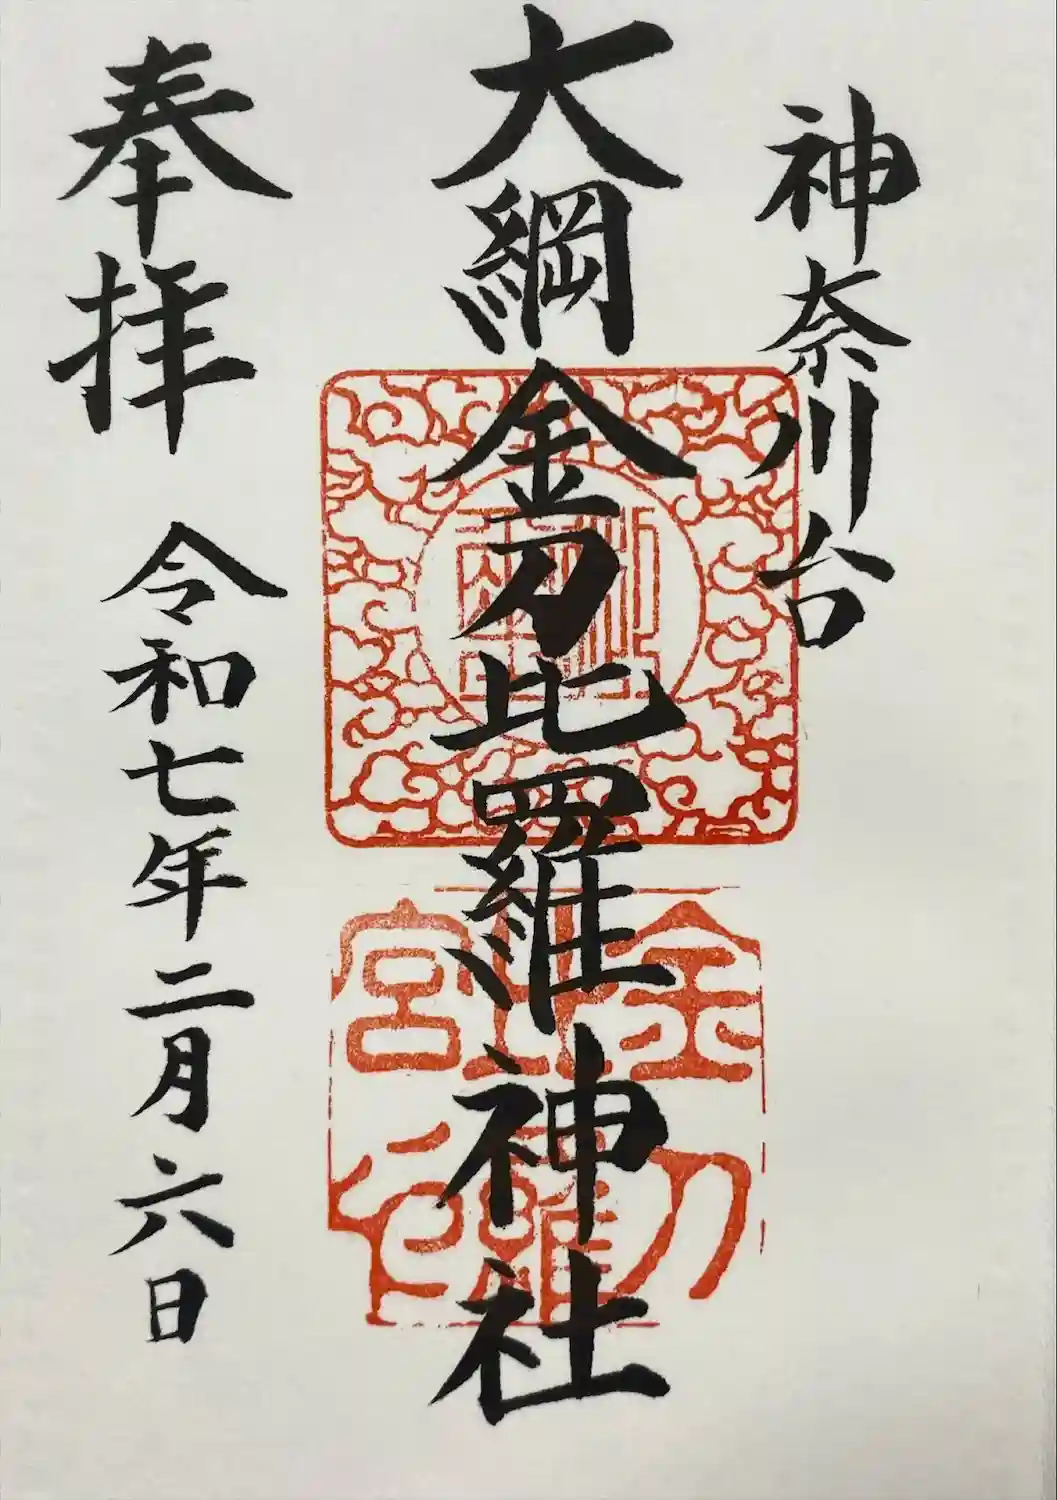 神奈川台
大綱金刀比羅神社
奉拝 令和七年二月六日